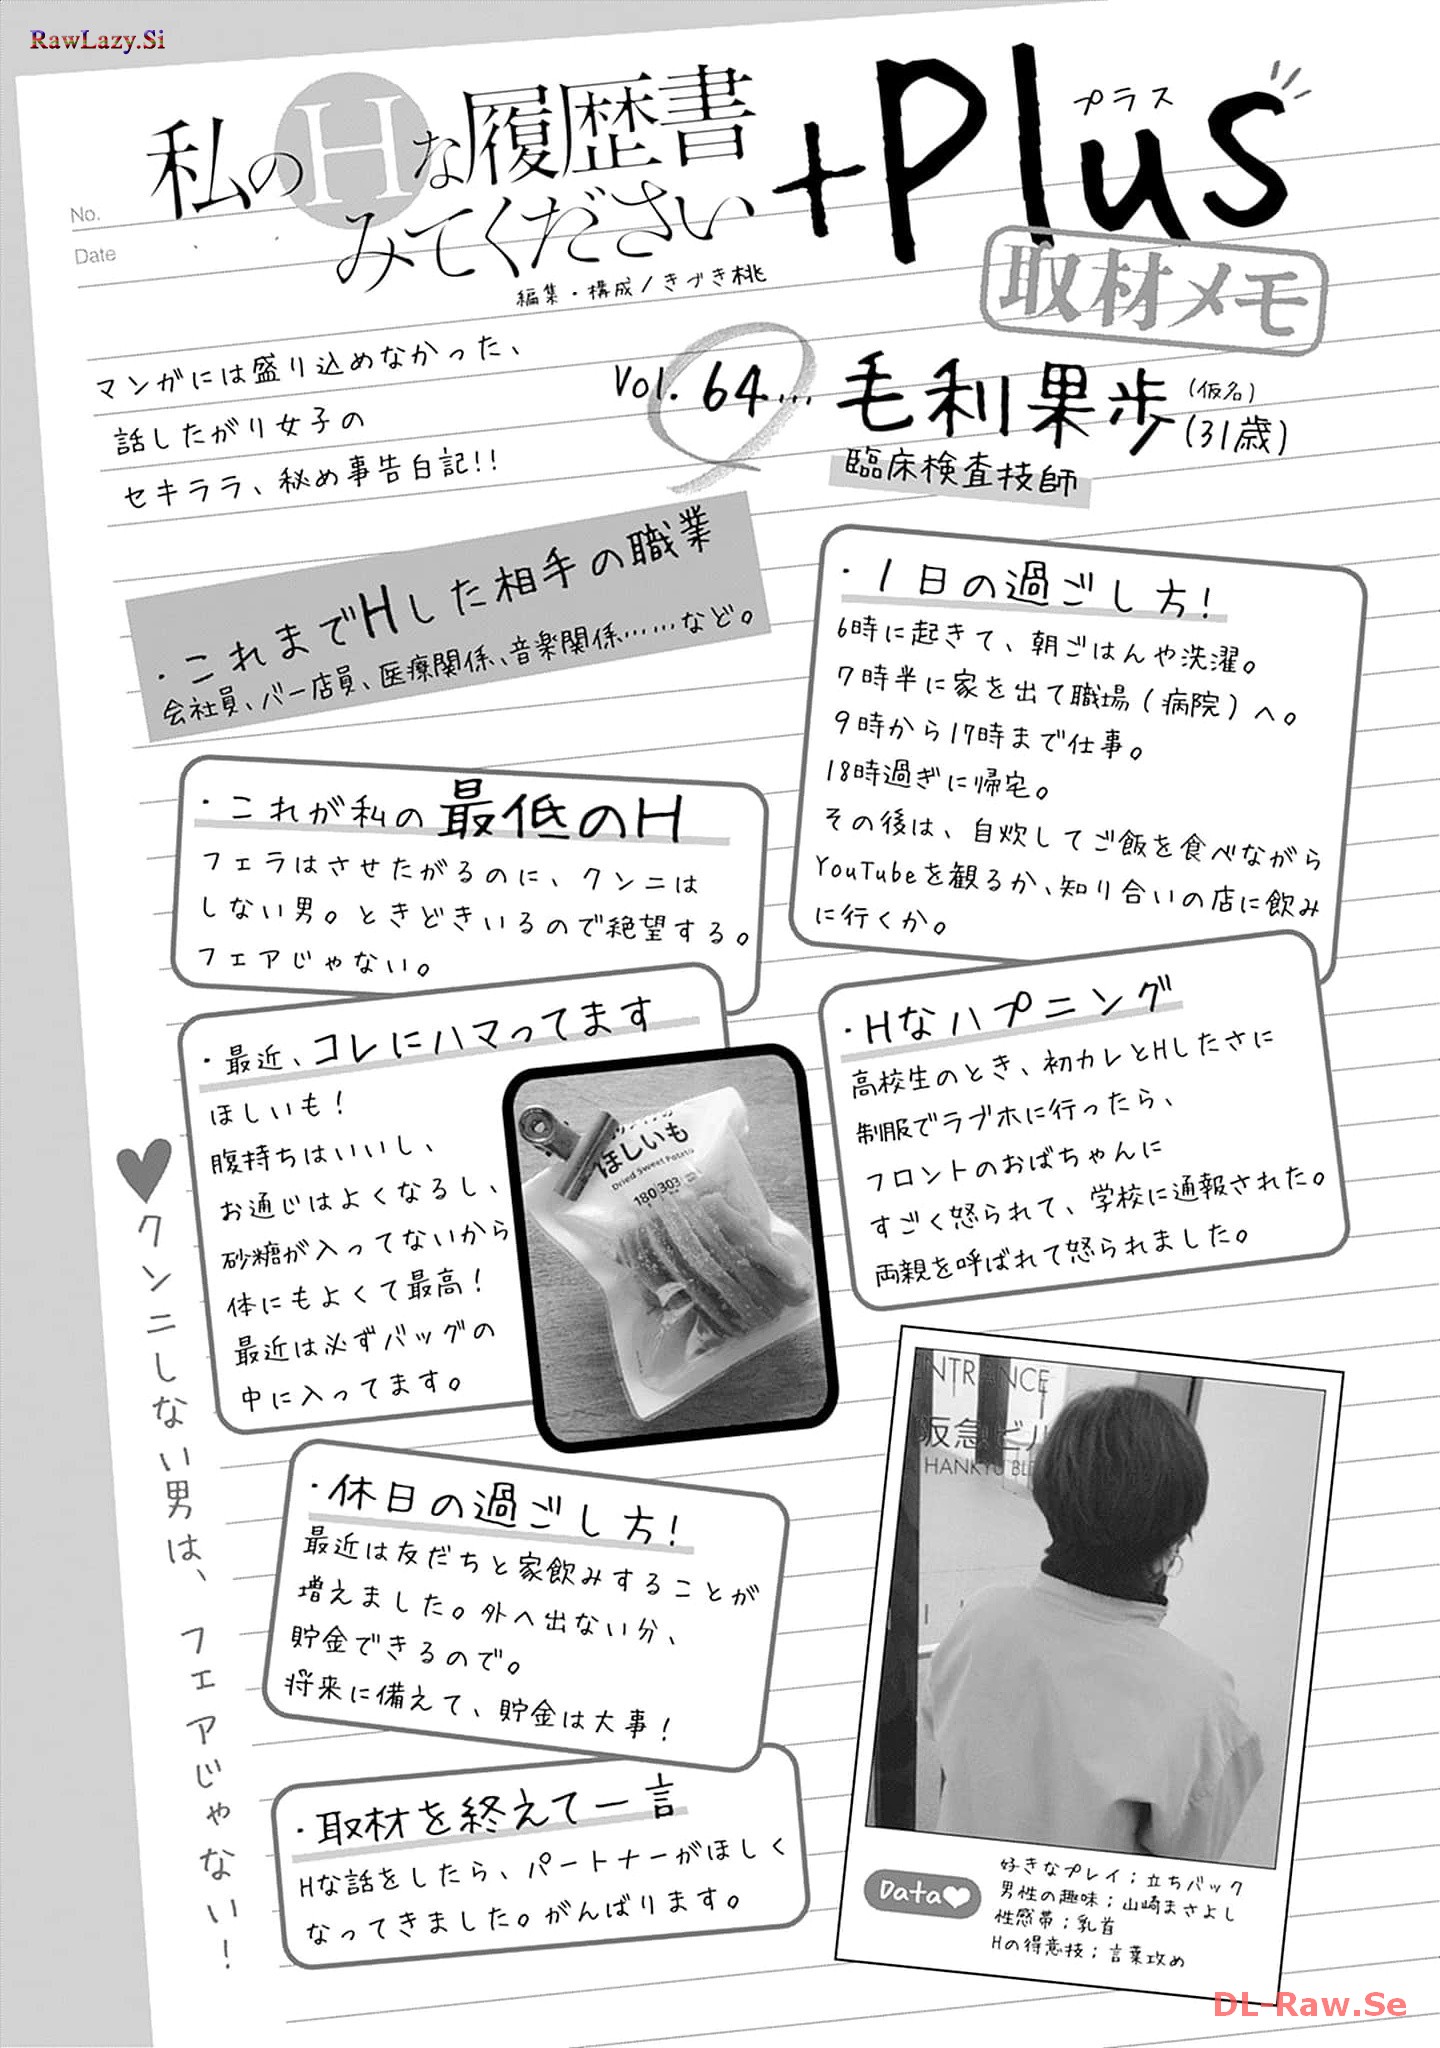 RawLazy.Si
No.
Date
私のHな履歴書
みてください
+Plus
プラス
取材メモ
編集・構成/きづき桃
マンガには盛り込めなかった、
話したがり女子の
セキララ、秘め事告白記!!
Vol.64… 毛利果歩(仮名)
(31歳)
臨床検査技師
・これまでHした相手の職業
会社員、バー店員、医療関係、音楽関係……など。
・1日の過ごし方!
6時に起きて、朝ごはんや洗濯。
7時半に家を出て職場(病院)へ。
9時から17時まで仕事。
18時過ぎに帰宅。
その後は、自炊してご飯を食べながら
YouTubeを観るか、知り合いの店に飲み
に行くか。
・これが私の最低のH
フェラはさせたがるのに、クンニは
しない男。ときどきいるので絶望する。
フェアじゃない。
・最近、コレにハマってます
ほしいも!
腹持ちはいいし、
お通じはよくなるし、
砂糖が入ってないから
体にもよくて最高!
最近は必ずバッグの
中に入ってます。
ほしいも
Dried Sweet Potato
180 303
・Hなハプニング
高校生のとき、初カレとHしたさに
制服でラブホに行ったら、
フロントのおばちゃんに
すごく怒られて、学校に通報された。
両親を呼ばれて怒られました。
♥クンニしない男は、フェアじゃない!
・休日の過ごし方!
最近は友だちと家飲みすることが
増えました。外へ出ない分、
貯金できるので。
将来に備えて、貯金は大事!
・取材を終えて一言
Hな話をしたら、パートナーがほしく
なってきました。がんばります。
NTRANCE
阪急ビル
HANKYU BL
Data♥
好きなプレイ;立ちバック
男性の趣味;山崎まさよし
性感帯;乳首
Hの得意技;言葉攻め
DL-Raw.Se